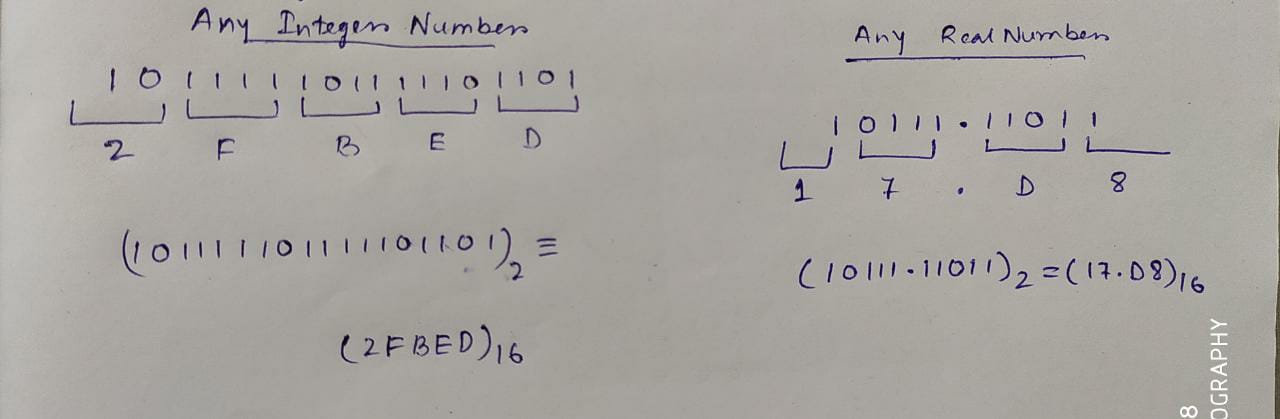 Any Integers Numbers
10 1111 1011 1110 1101
2 F B E D
(101111101111101101)₂ ≡
(2FBED)₁₆
Any Real Numbers
1 0111 . 1101 1
1 7 . D 8
(10111.11011)₂ = (17.D8)₁₆
8
OGRAPHY